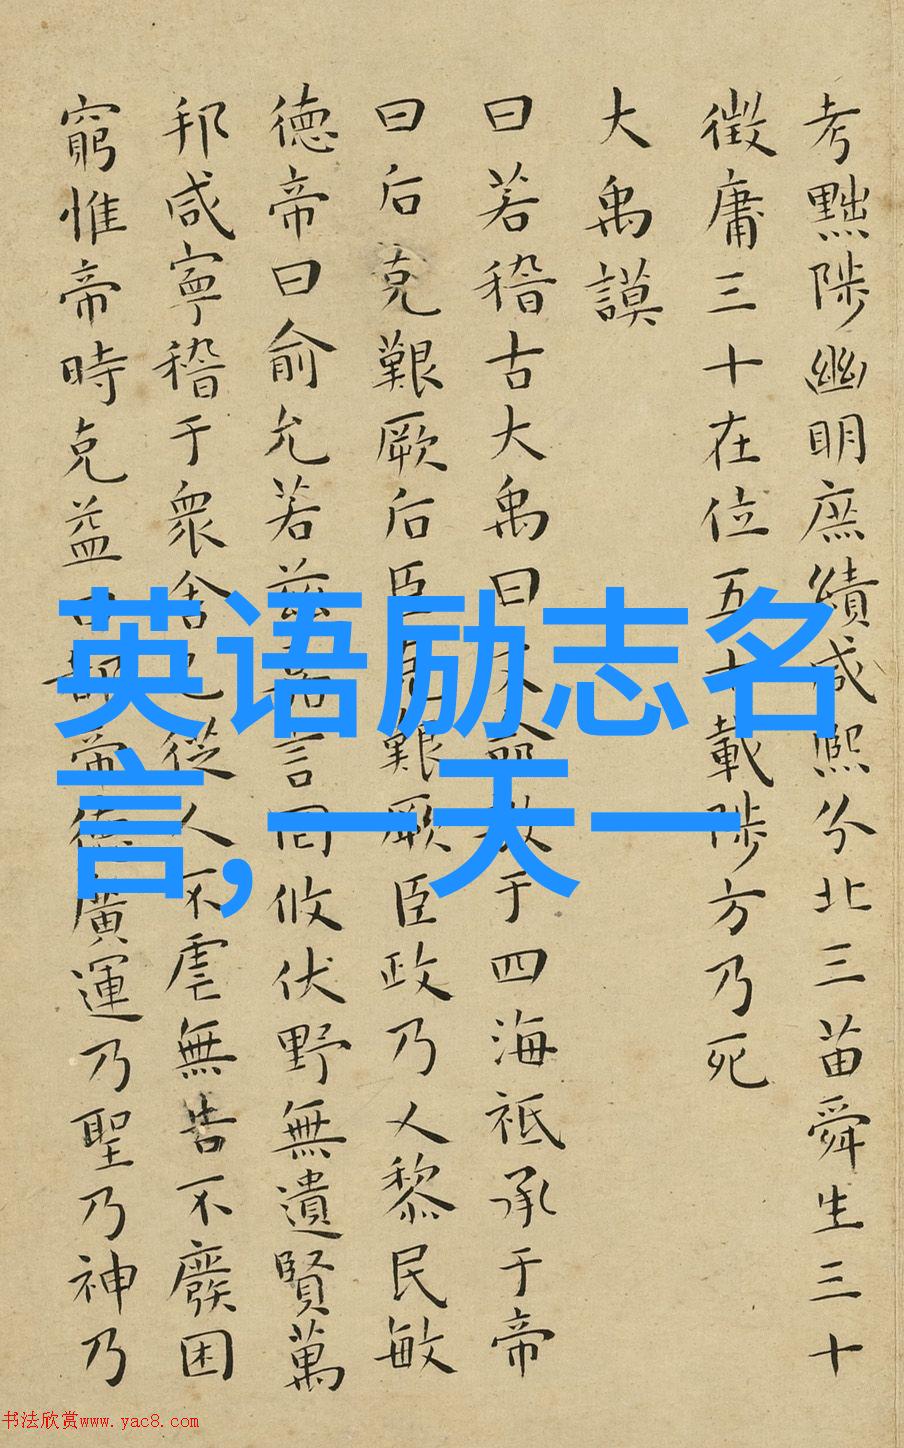 考黜陟幽明庶績咸熙分北三苗舜生三十
徵庸三十在位五十載陟方乃死
大禹謨
曰若稽古大禹曰文命敷于四海祗承于帝
曰后克艱厥后臣克艱厥臣政乃乂黎民敏
德帝曰俞允若茲嘉言罔攸伏野無遺賢萬
邦咸寧稽于衆舍己從人不虐無告不廢困
窮惟帝時克益曰都帝德廣運乃聖乃神乃
英语励志名
言,一天一
书法欣赏www.yac8.com